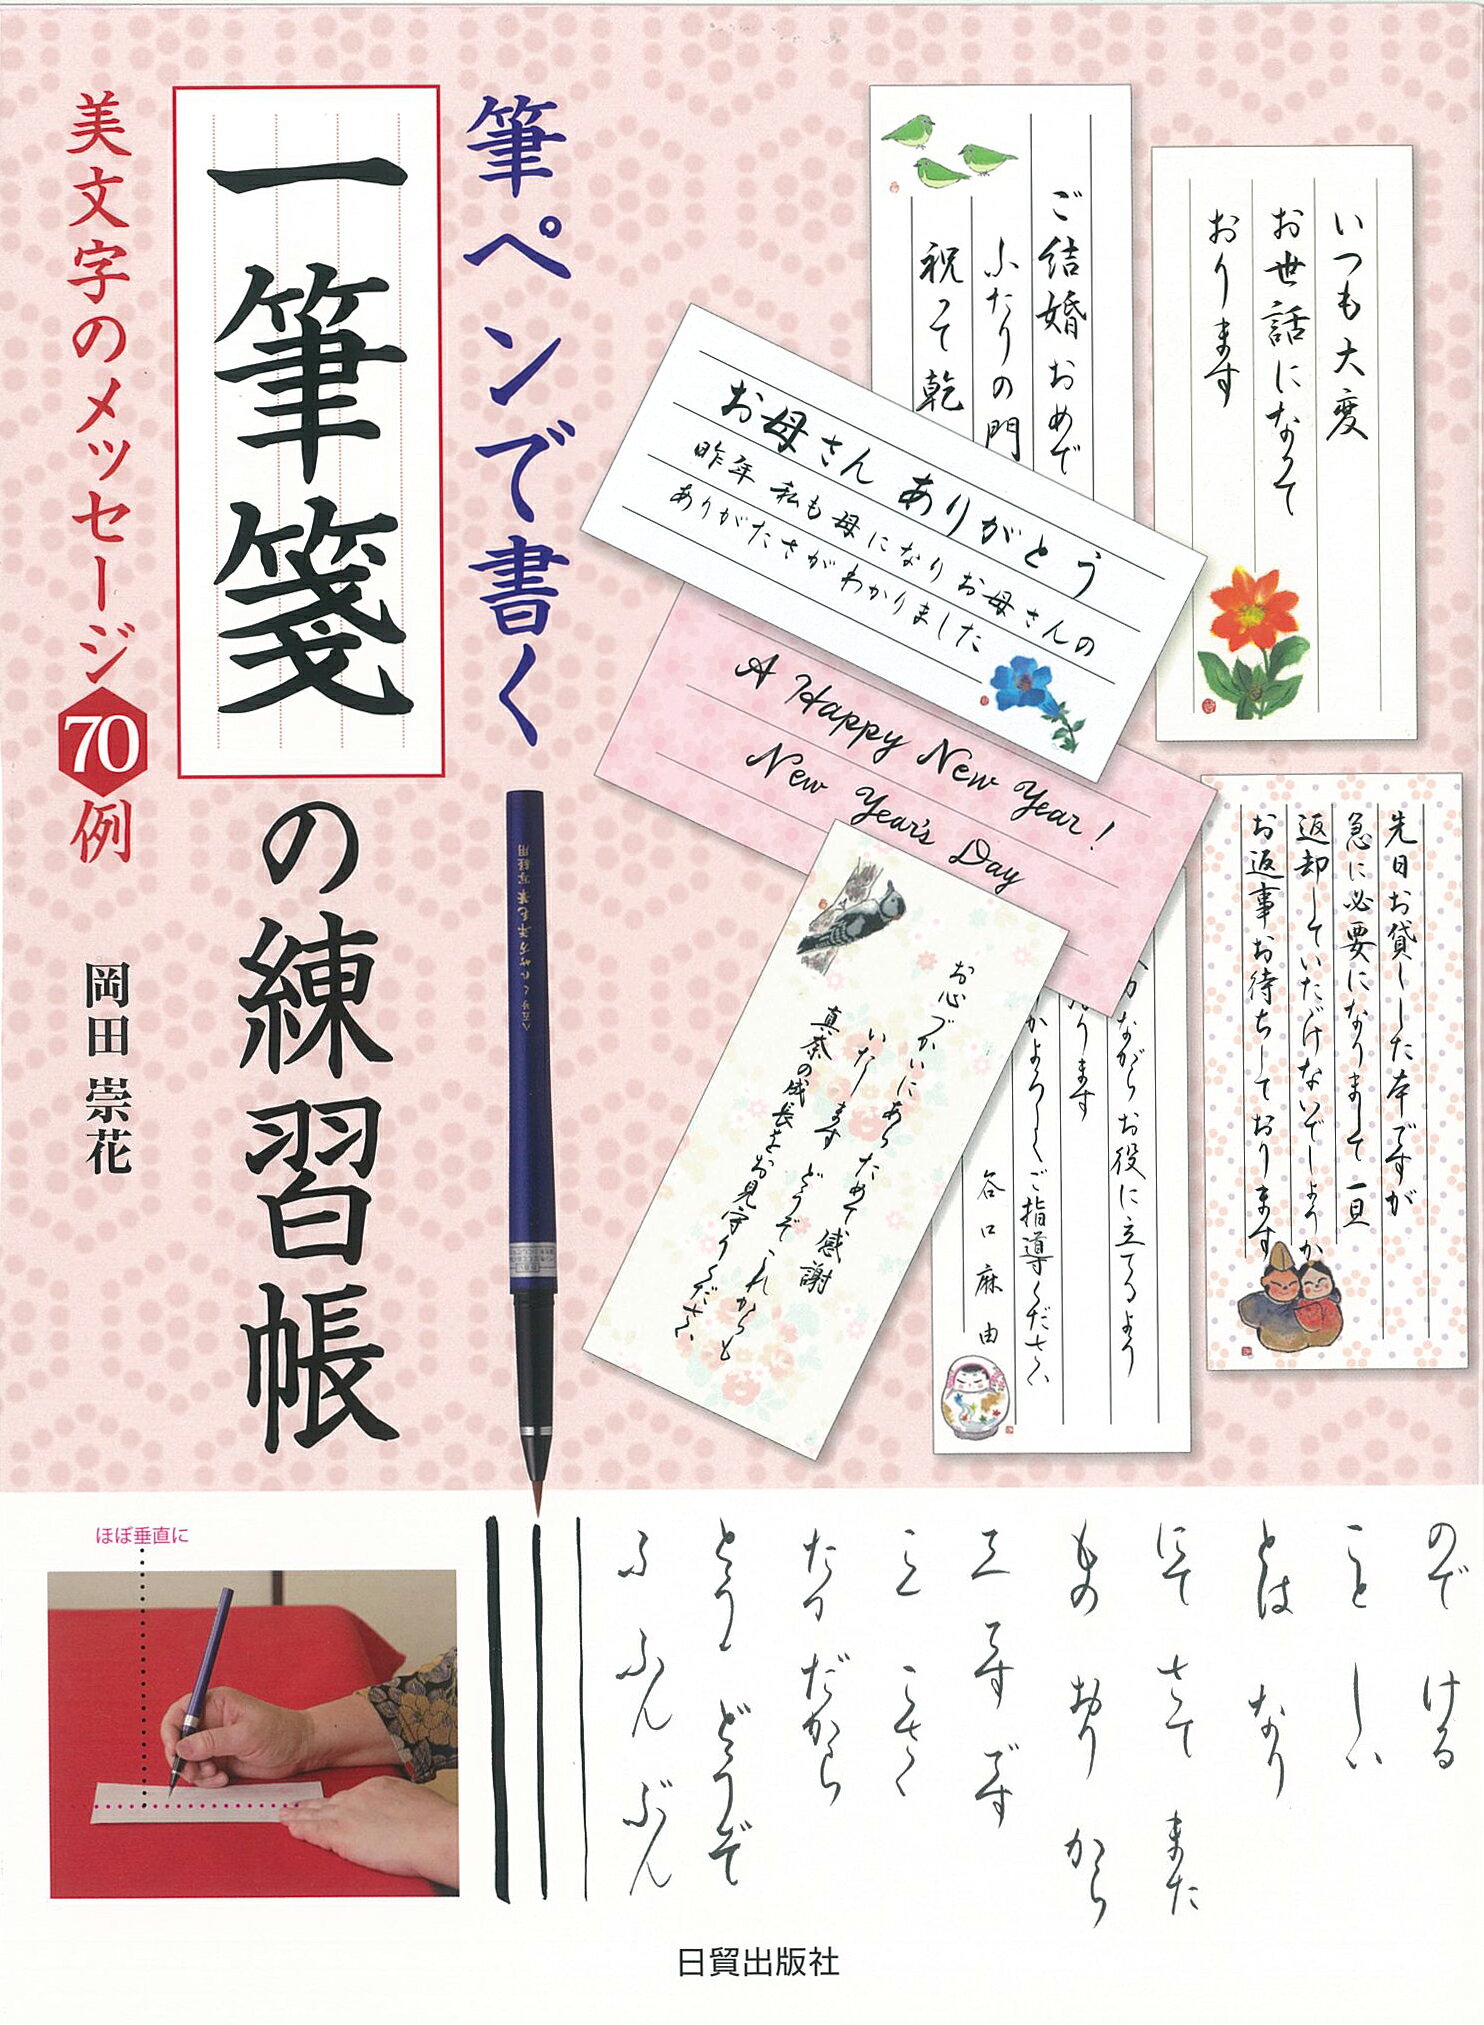 筆ペンで書く
一筆箋
の練習帳
美文字のメッセージ70例
岡田 崇花
いつも大変
お世話になって
おります
ご結婚おめで
ふたりの門
祝って乾
お母さん ありがとう
昨年 私も母になりお母さんの
ありがたさがわかりました
A Happy New Year!
New Year's Day
先日お貸しした本ですが
急に必要になりまして 一旦
返却していただけないでしょうか
お返事お待ちしております
お心づかいにあらためて 感謝
いたします どうぞ これからも
真奈の成長をお見守りください
ながら お役に立てるよう
ります
かよろしくご指導ください
谷口麻由
ので ける
こと しい
とは なり
にて さて また
もの おり から
こ こさく
たう だから
とう どうぞ
ふ ふん ぶん
ほぼ垂直に
日貿出版社